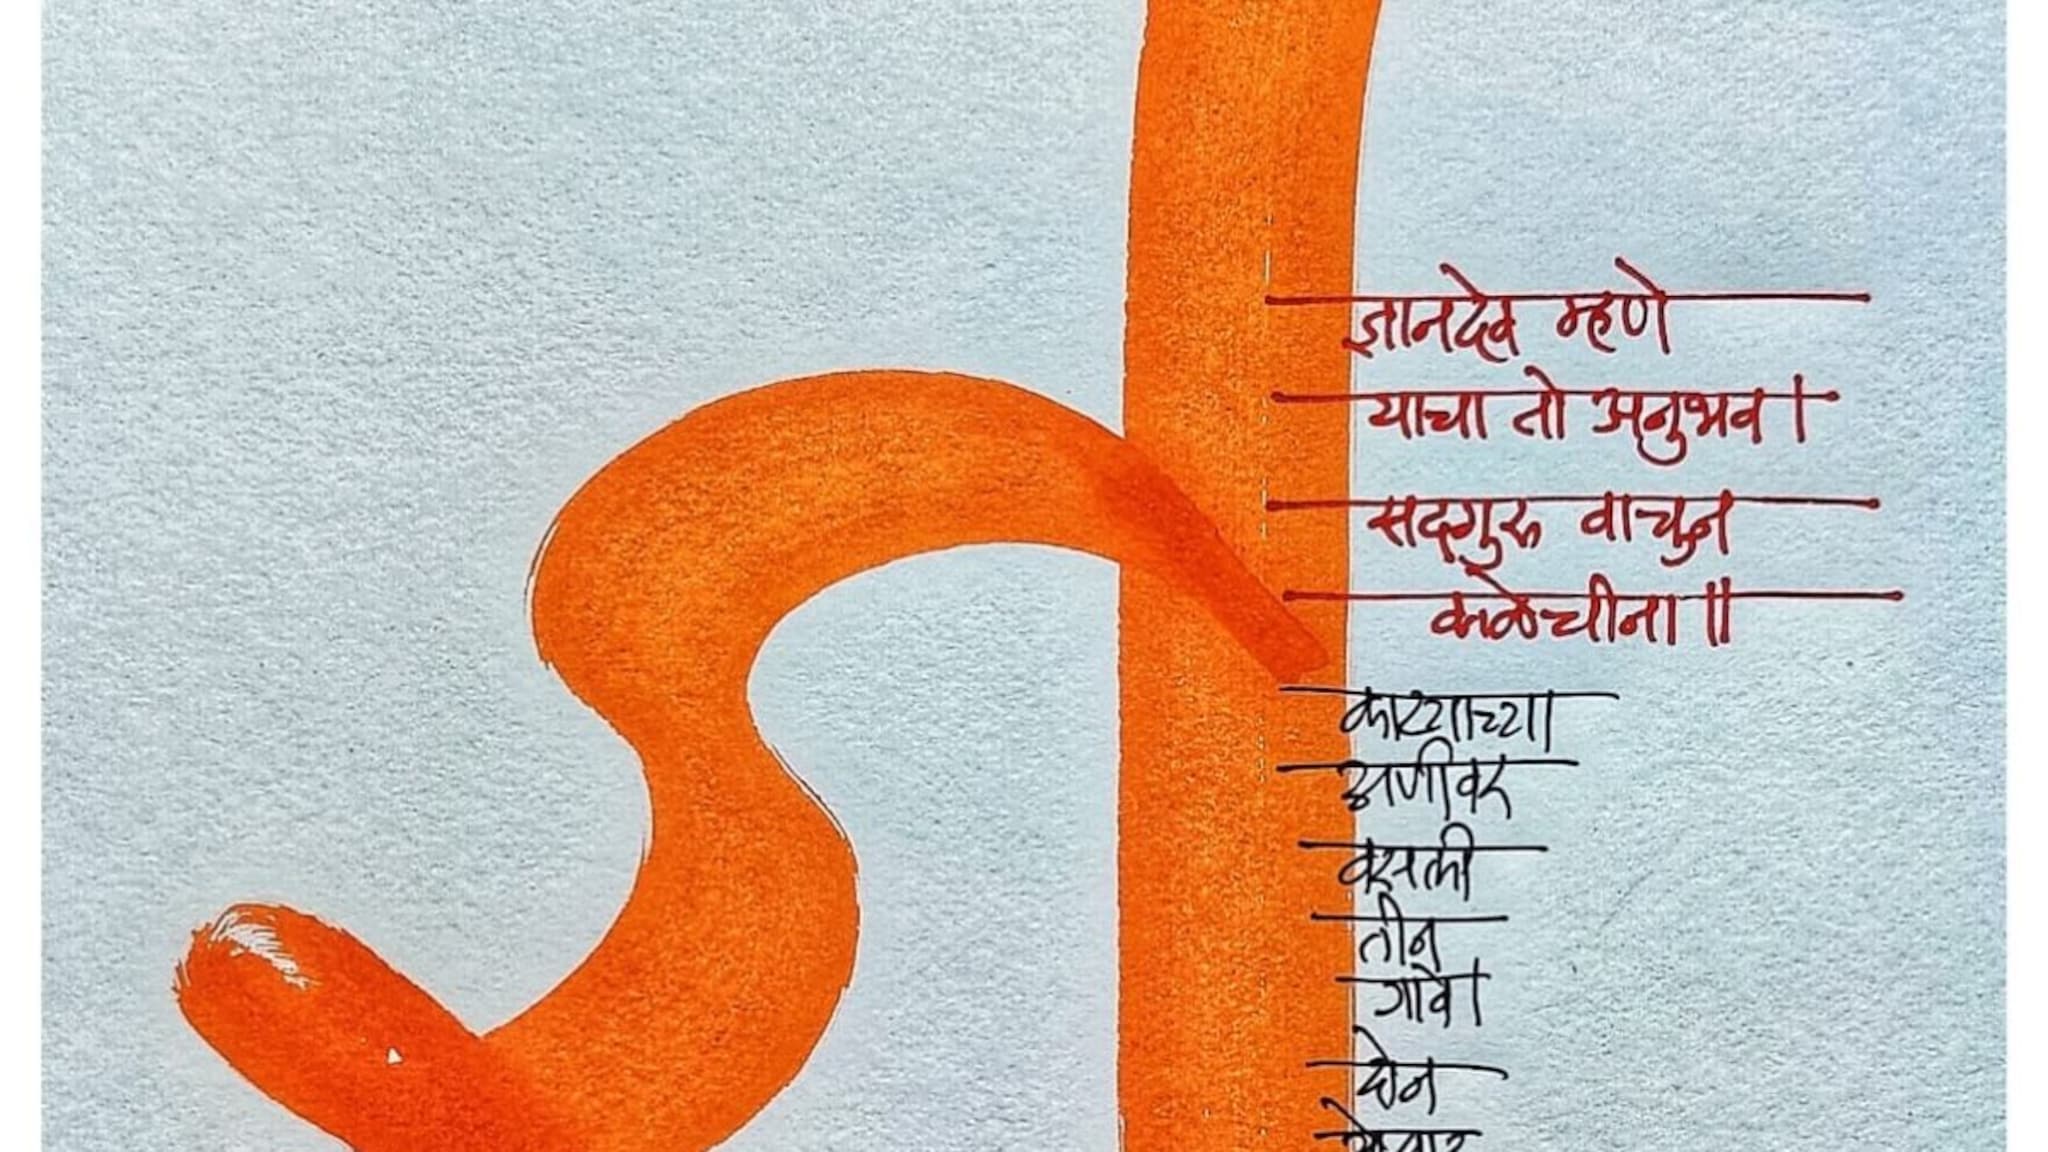 ज्ञानदेव म्हणे
याचा तो अनुभव।
सदगुरु वाचुन
कळेचीना॥
काट्याच्या
अणीवर
वसली
तीन
गावे।
दोन